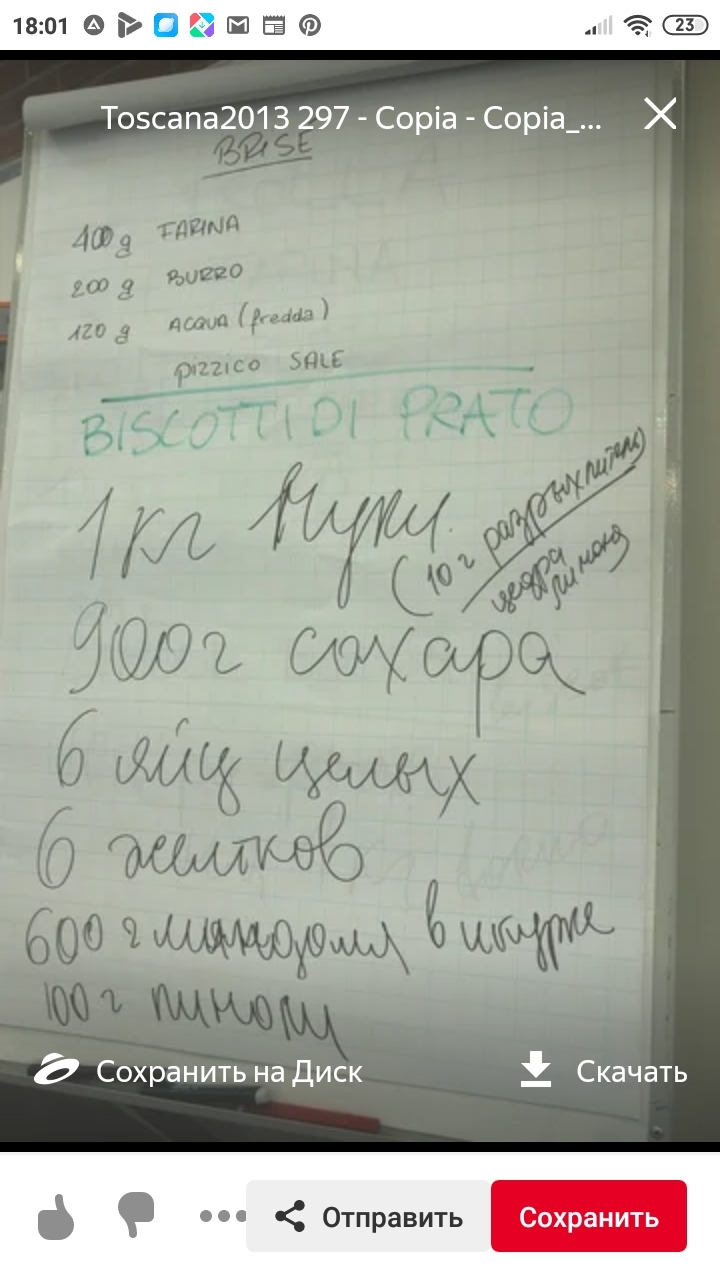 18:01
23
Toscana2013 297 - Copia - Copia_...
BRISE
400 g FARINA
200 g BURRO
120 g ACQUA (fredda)
pizzico SALE
BISCOTTI DI PRATO
1 кг муки
(10 г разрыхлителя)
цедра
лимона
900 г сахара
6 яиц целых
6 желтков
600 г миндаля в шкурке
100 г пиноли
Сохранить на Диск
Скачать
Отправить
Сохранить